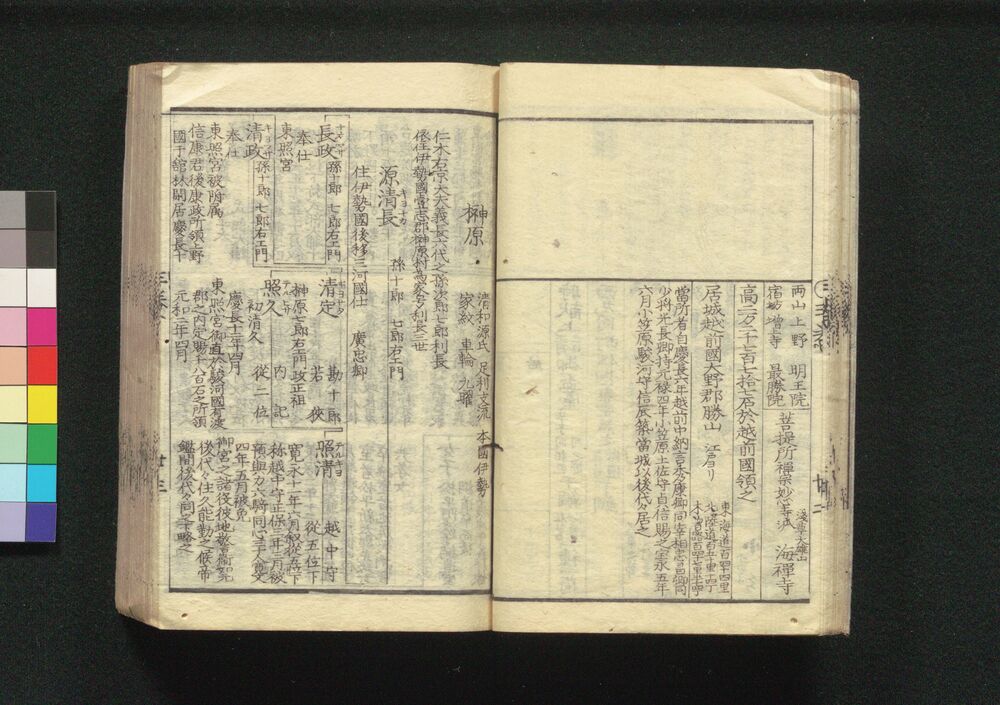 両山 上野 明王院
宿坊 増上寺 最勝院
菩提所禅宗妙心寺派 浅草大雄山 海禅寺
高二万二千七百七拾七石於越前國領之
居城越前國大野郡勝山 江戸ヨリ
東海道百四十四里
當所者自慶長六年越前中納言秀康卿同宰相忠昌卿同
少将光長卿持元禄四年小笠原土佐守貞信賜之宝永五年
六月小笠原駿河守信辰築當城以後代々居之
榊原
清和源氏 足利支流 本國伊勢
家紋 車輪 九曜
仁木右京大夫義長六代之孫次郎七郎利長
住伊勢國壹志郡榊原村為家号利長三世
源清長 キヨナガ
孫十郎 七郎右エ門
住伊勢國後移三河國仕 廣忠卿
長政 孫十郎 七郎右エ門
奉仕
東照宮
清政 孫十郎 七郎右エ門
奉仕
東照宮被附属
信康君後康政所領上野
國于舘林閑居慶長十
清定 勘十郎 若狭
榊原七郎右エ門政正祖
照久 内記
初清久 従二位
慶長十二年四月
東照宮御直於駿河國有渡
郡之内定賜千八百石之所領
元和二年四月
照清 テルキヨ 越中守
従五位下
寛永十一年六月叙従五位下
称越中守正保三年十二月被
預與力六騎同心三十人寛文
四年五月被免
御宮之諸役彼地警衛知
後代々住久能勤之候帝
鑑間後代々同之下略之